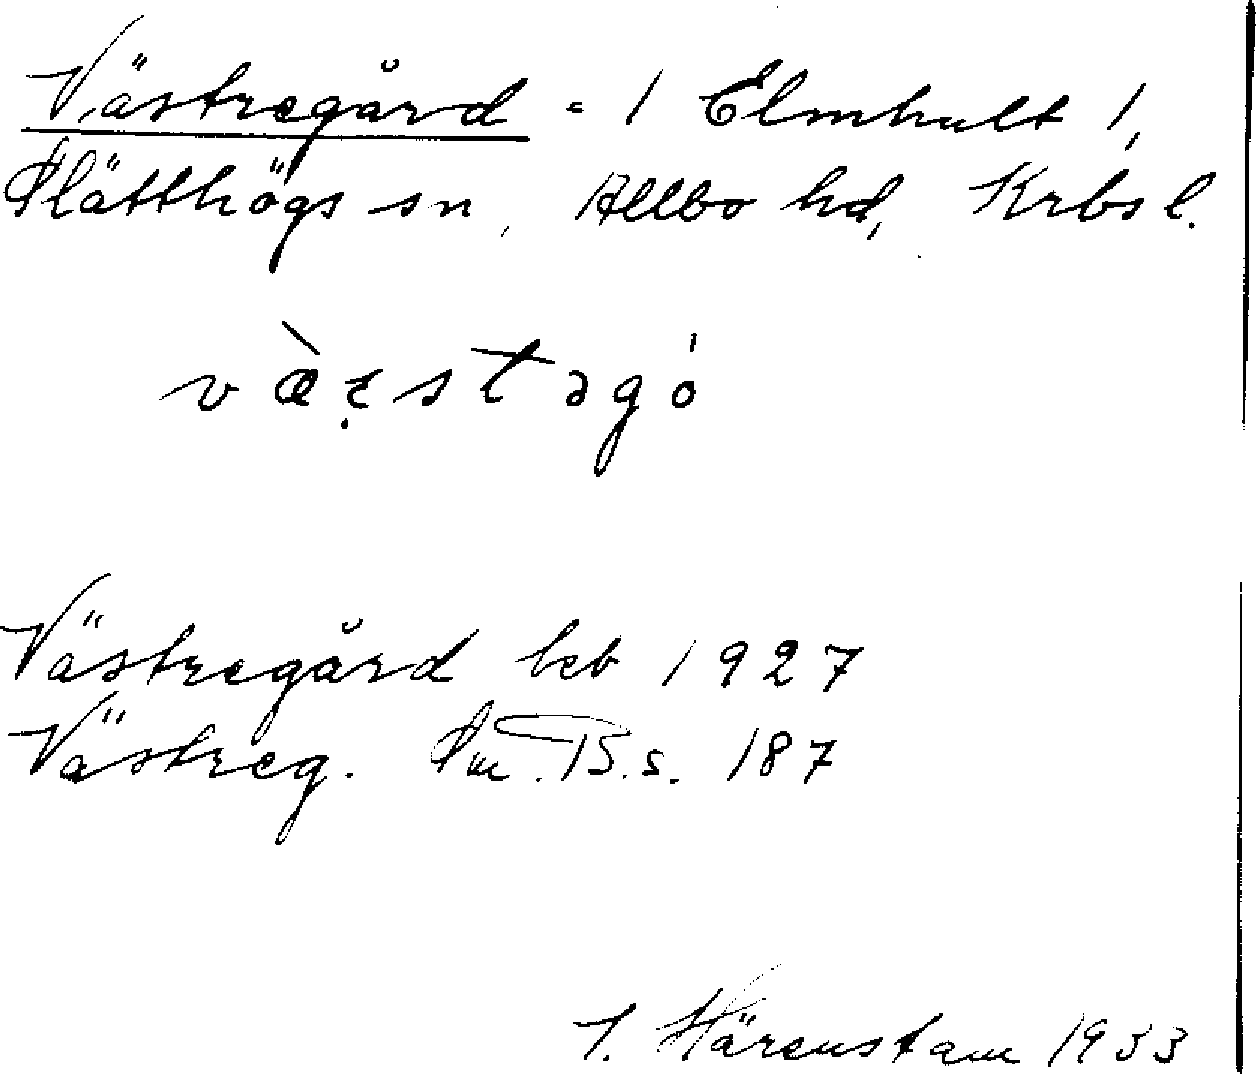 Västregård = 1 Elmhult 1,
Slätthögs sn, Allbo hd, Krbs l.
Västregård beb 1927
Västreg. Sm. B. s. 187
J. Härenstam 1933